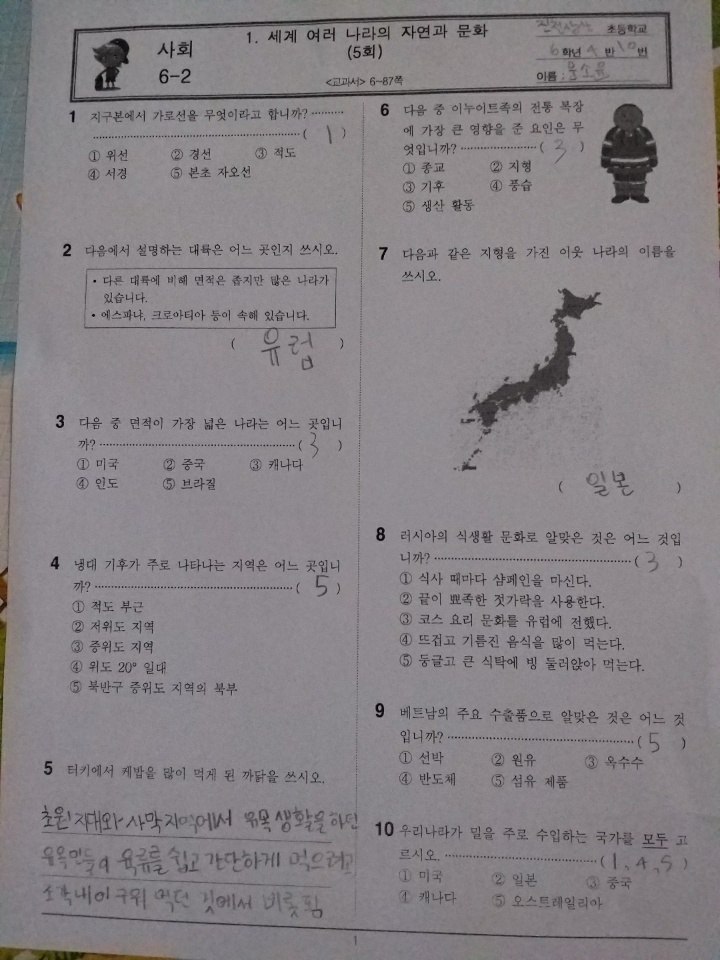 사회
6-2
1. 세계 여러 나라의 자연과 문화
(5회)
<교과서> 6~87쪽
초등학교
6학년 4반 10번
이름 :
1 지구본에서 가로선을 무엇이라고 합니까? ··········
··········( 1 )
① 위선 ② 경선 ③ 적도
④ 서경 ⑤ 본초 자오선
2 다음에서 설명하는 대륙은 어느 곳인지 쓰시오.
• 다른 대륙에 비해 면적은 좁지만 많은 나라가
있습니다.
• 에스파냐, 크로아티아 등이 속해 있습니다.
( 유럽 )
3 다음 중 면적이 가장 넓은 나라는 어느 곳입니
까? ··········( 3 )
① 미국 ② 중국 ③ 캐나다
④ 인도 ⑤ 브라질
4 냉대 기후가 주로 나타나는 지역은 어느 곳입니
까? ··········( 5 )
① 적도 부근
② 저위도 지역
③ 중위도 지역
④ 위도 20° 일대
⑤ 북반구 중위도 지역의 북부
5 터키에서 케밥을 많이 먹게 된 까닭을 쓰시오.
초원 지대와 사막 지역에서 유목 생활을 하던
유목민들이 육류를 쉽고 간단하게 먹으려고
조각내어 구워 먹던 것에서 비롯됨
6 다음 중 이누이트족의 전통 복장
에 가장 큰 영향을 준 요인은 무
엇입니까? ··········( 3 )
① 종교 ② 지형
③ 기후 ④ 풍습
⑤ 생산 활동
7 다음과 같은 지형을 가진 이웃 나라의 이름을
쓰시오.
( 일본 )
8 러시아의 식생활 문화로 알맞은 것은 어느 것입
니까? ··········( 3 )
① 식사 때마다 샴페인을 마신다.
② 끝이 뾰족한 젓가락을 사용한다.
③ 코스 요리 문화를 유럽에 전했다.
④ 뜨겁고 기름진 음식을 많이 먹는다.
⑤ 둥글고 큰 식탁에 빙 둘러앉아 먹는다.
9 베트남의 주요 수출품으로 알맞은 것은 어느 것
입니까? ··········( 5 )
① 선박 ② 원유 ③ 옥수수
④ 반도체 ⑤ 섬유 제품
10 우리나라가 밀을 주로 수입하는 국가를 모두 고
르시오. ··········( 1, 4, 5 )
① 미국 ② 일본 ③ 중국
④ 캐나다 ⑤ 오스트레일리아
1